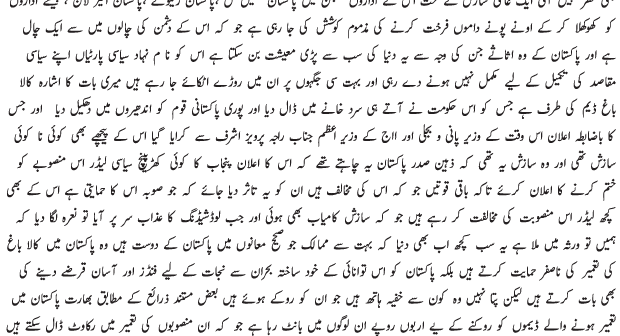 کو کھوکھلا کر کے اونے پونے داموں فرخت کرنے کی مذموم کوشش کی جا رہی ہے جو کہ اس کے دشمن کی چالوں میں سے ایک چال
ہے اور پاکستان کے وہ اثاثے جن کی وجہ سے یہ دنیا کی سب سے بڑی معیشت بن سکتا ہے اس کو نا م نہاد سیاسی پارٹیاں اپنے سیاسی
مقاصد کی تکمیل کے لیے مکمل نہیں ہونے دے رہی اور بہت سی جگہوں پر ان میں روڑے اٹکائے جا رہے ہیں میری بات کا اشارہ کالا
باغ ڈیم کی طرف ہے جس کو اس حکومت نے آتے ہی سرد خانے میں ڈال دیا اور پوری پاکستانی قوم کو اندھیروں میں دھکیل دیا اور جس
کا باضابطہ اعلان اس وقت کے وزیر پانی و بجلی اور ااج کے وزیر اعظم جناب راجہ پرویز اشرف سے کرایا گیا اس کے پیچھے بھی کوئی نا کوئی
سازش تھی اور وہ سازش یہ تھی کہ ذہین صدر پاکستان یہ چاہتے تھے کہ اس کا اعلان پنجاب کا کوئی کھڑپینچ سیاسی لیڈر اس منصوبے کو
ختم کرنے کا اعلان کرئے تاکہ باقی قوتیں جو کہ اس کی مخالف ہیں ان کو یہ تاثر دیا جائے کہ جو صوبہ اس کا حمایتی ہے اس کے بھی
کچھ لیڈر اس منصوبت کی مخالفت کر رہے ہیں جو کہ سازش کامیاب بھی ہوئی اور جب لوڈشیڈنگ کا عذاب سر پر آیا تو نعرہ لگا دیا کہ
ہمیں تو ورثہ میں ملا ہے یہ سب کچھ اب بھی دنیا کہ بہت سے ممالک جو صحیح معانوں میں پاکستان کے دوست ہیں وہ پاکستان میں کالا باغ
کی تعمیر کی ناصفر حمایت کرتے ہیں بلکہ پاکستان کو اس توانائی کے خود ساختہ بحران سے نجات کے لیے فنڈز اور آسان قرضے دینے کی
بھی بات کرتے ہیں لیکن پتا نہیں وہ کون سے خفیہ ہاتھ ہیں جو ان کو روکے ہوئے ہیں بعض مستند ذرائع کے مطابق بھارت پاکستان میں
تعمیر ہونے والے ڈیموں کو روکنے کے یے اربوں روپے ان لوگوں میں بانٹ رہا ہے جو کہ ان منصوبوں کی تعمیر میں رکاوٹ ڈال سکتے ہیں